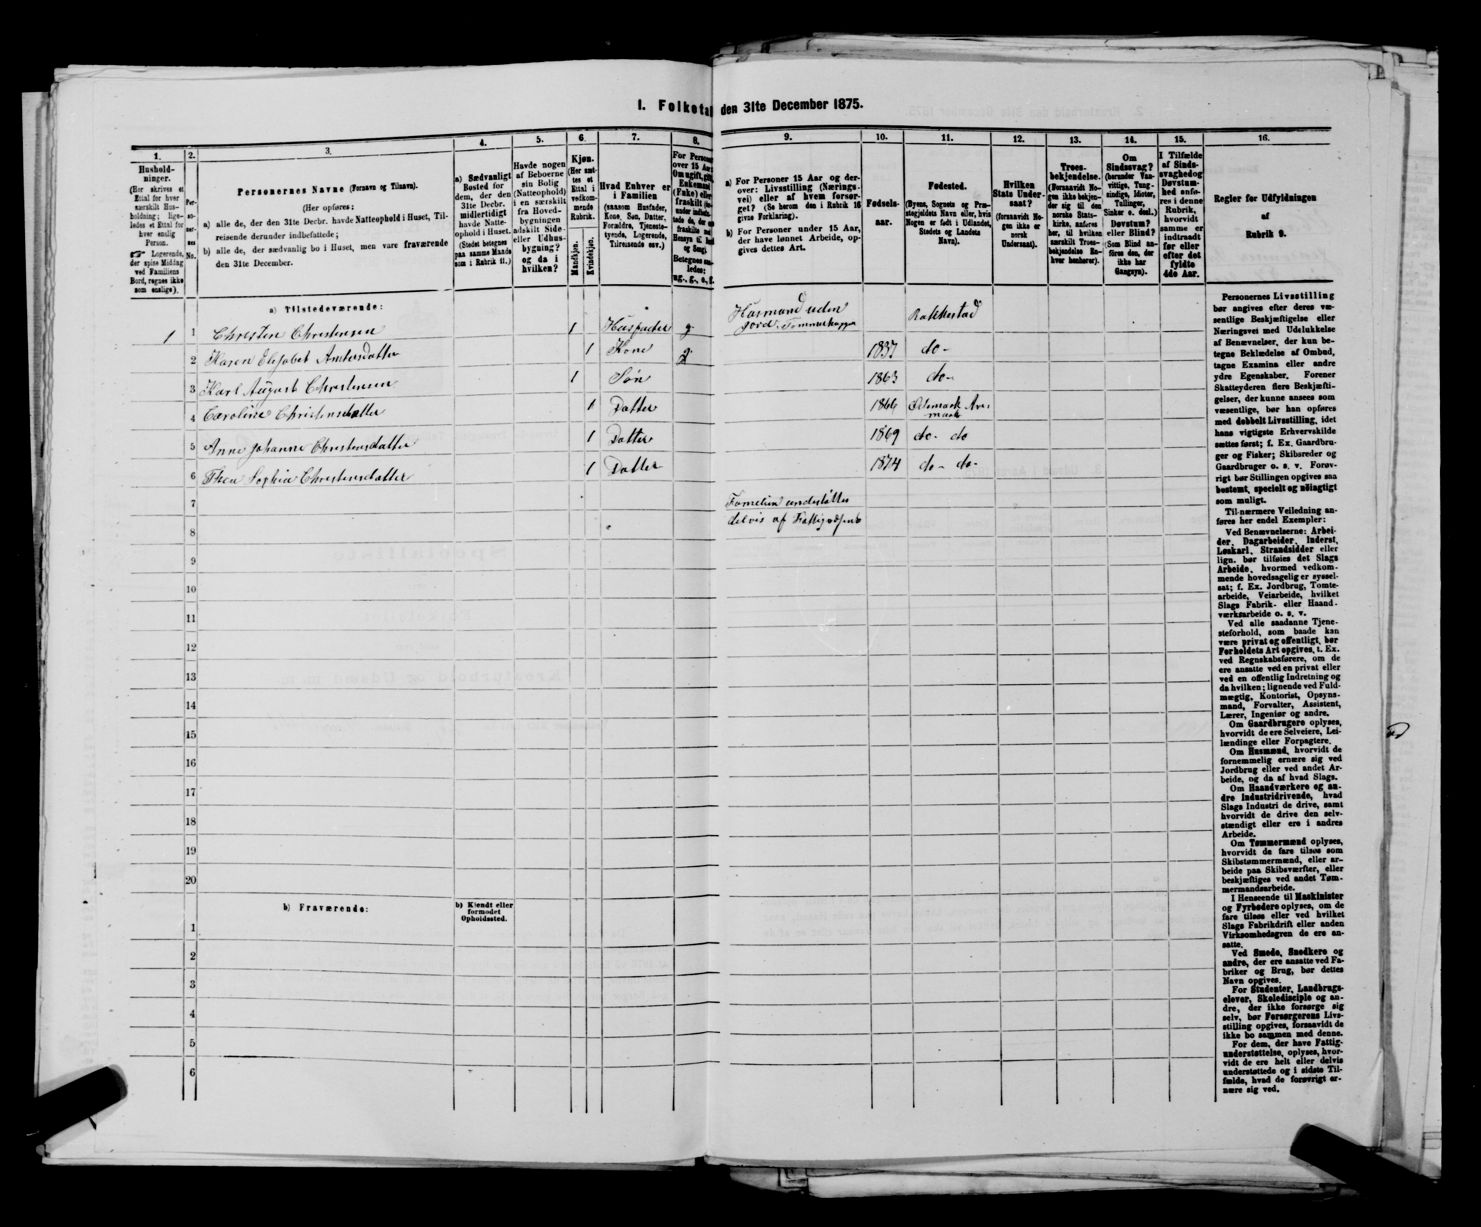 I. Folketal den 31te December 1875.
1.
2.
3.
4.
5.
6.
7.
8.
9.
10.
11.
12.
13.
14.
15.
16.
Hushold-
ninger.
(Her skrives et
Ettal for hver
særskilt Hus-
holdning; lige-
ledes et Ettal for
hver enslig
Person.
☞ Logerende,
der spise Middag
ved Familiens
Bord, regnes ikke
som enslige).
Per-
so-
ner-
nes
No.
Personernes Navne (Fornavn og Tilnavn).
(Her opføres:
a) alle de, der den 31te Decbr. havde Natteophold i Huset, Til-
reisende derunder indbefattede;
b) alle de, der sædvanlig bo i Huset, men vare fraværende
den 31te December.
a) Sædvanligt
Bosted for
dem, der den
31te Decbr.
midlertidigt
havde Natte-
ophold i Huset.
(Stedet betegnes
paa samme Maade
som i Rubrik 11.)
Havde nogen
af Beboerne
sin Bolig
(Natteophold)
i en særskilt
fra Hoved-
bygningen
adskilt Side-
eller Udhus-
bygning?
og da i
hvilken?
Kjøn.
(Her sæt-
tes et
Ettal i
vedkom-
mende
Rubrik.
Mandkjøn.
Kvindekjøn.
Hvad Enhver er
i Familien
(saasom Husfader,
Kone, Søn, Datter,
Forældre, Tjeneste-
tyende, Logerende,
Tilreisende osv.)
For Personer
over 15 Aar:
Om ugift, gift,
Enkemand
(Enke) eller
fraskilt
a) For Personer 15 Aar og der-
over: Livsstilling (Nærings-
vei) eller af hvem forsør-
get? (Se herom den i Rubrik 16
givne Forklaring).
b) For Personer under 15 Aar,
der have lønnet Arbeide, op-
gives dettes Art.
Fødsels-
aar.
Fødested.
(Byens, Sognets og Præ-
stegjeldets Navn eller, hvis
Nogen er født i Udlandet,
Stedets og Landets
Navn).
Hvilken
Stats Under-
saat?
(forsaavidt No-
gen ikke er
norsk
Undersaat).
Troes-
bekjendelse.
(Forsaavidt No-
gen ikke bekjen-
der sig til den
norske Stats-
kirke, anføres
her, til hvilken
særskilt Troes-
bekjendelse En-
hver henhører).
Om
Sindssvag?
(herunder Van-
vittige, Tung-
sindige, Idioter,
Tullinger,
Sinker o. desl.)
Døvstum?
eller Blind?
(Som Blind an-
føres den, der
ikke har
Gangsyn).
I Tilfælde
af Sinds-
svaghed og
Døvstum-
hed anfø-
res i denne
Rubrik,
hvorvidt
samme er
indtraadt
før eller
efter det
fyldte
4de Aar.
Regler for Udfyldningen
af
Rubrik 9.
a) Tilstedeværende:
1 1 Christen Christensen 1 Husfader g Husmand uden Jord Rakkestad
2 Karen Elisabet Andersdatter 1 Kone g 1837 do-
3 Karl August Christensen 1 Søn 1863 do-
4 Caroline Christensdatter 1 Datter 1866
5 Anne Johanne Christensdatter 1 Datter 1869 do- do
6 Thea Sophie Christensdatter 1 Datter 1874 do- do-
7 Familien understøttes
8 delvis af Fattigvæsenet
9
10
11
12
13
14
15
16
17
18
19
20
b) Fraværende:
b) Kjendt eller
formodet
Opholdssted.
1
2
3
4
5
6
Personernes Livsstilling
bør angives efter deres væ-
sentlige Beskjæftigelse eller
Næringsvei med Udelukkelse
af Benævnelser, der kun be-
tegne Beklædelse af Ombud,
tagne Examina eller andre
ydre Egenskaber. Forener
Skatteyderen flere Beskjæfti-
gelser, der kunne ansees som
væsentlige, bør han opføres
med dobbelt Livsstilling, idet
hans vigtigste Erhvervskilde
sættes først; f. Ex. Gaardbru-
ger og Fisker; Skibsreder og
Gaardbruger o. s. v. Forøv-
rigt bør Stillingen opgives saa
bestemt, specielt og nøiagtigt
som muligt.
Til nærmere Veiledning an-
føres her endel Exempler:
Ved Benævnelserne: Arbei-
der, Dagarbeider, Inderst,
Løskarl, Strandsidder eller
lign. bør tilføies det Slags
Arbeide, hvormed vedkom-
mende hovedsagelig er syssel-
sat; f. Ex. Jordbrug, Tomte-
arbeide, Veiarbeide, hvilket
Slags Fabrik- eller Haand-
værksarbeide o. s. v.
Ved alle saadanne Tjene-
steforhold, som baade kan
være privat og offentligt, bør
Forholdets Art opgives, t. Ex.
ved Regnskabsførere, om de
ere ansatte ved en privat eller
ved en offentlig Indretning og
da hvilken; lignende ved Fuld-
mægtig, Kontorist, Opsyns-
mand, Forvalter, Assistent,
Lærer, Ingeniør og andre.
Om Gaardbrugere oplyses,
hvorvidt de ere Selveiere, Lei-
lændinge eller Forpagtere.
Om Husmænd, hvorvidt de
fornemmelig ernære sig ved
Jordbrug eller ved andet Ar-
beide, og da af hvad Slags.
Om Haandværkere og an-
dre Industridrivende, hvad
Slags Industri de drive, samt
hvorvidt de drive den selv-
stændigt eller ere i andres
Arbeide.
Om Tømmermænd oplyses,
hvorvidt de fare tilsøs som
Skibstømmermænd, eller ar-
beide paa Skibsværfter, eller
beskjæftiges ved andet Tøm-
mermandsarbeide.
I Henseende til Maskinister
og Fyrbødere oplyses, om de
fare tilsøs eller ved hvilket
Slags Fabrikdrift eller anden
Virksomhedsgren de ere an-
satte.
Ved Smede, Snedkere og
andre, der ere ansatte ved Fa-
briker og Brug, bør dettes
Navn opgives.
For Studenter, Landbrugs-
elever, Skoledisciple og an-
dre, der ikke forsørge sig
selv, bør Forsørgerens Livs-
stilling opgives, forsaavidt de
ikke bo sammen med denne.
For dem, der have Fattig-
understøttelse, oplyses, hvor-
vidt de ere helt eller delvis
understøttede og i sidste Til-
fælde, hvad de forøvrigt er-
nære sig ved.